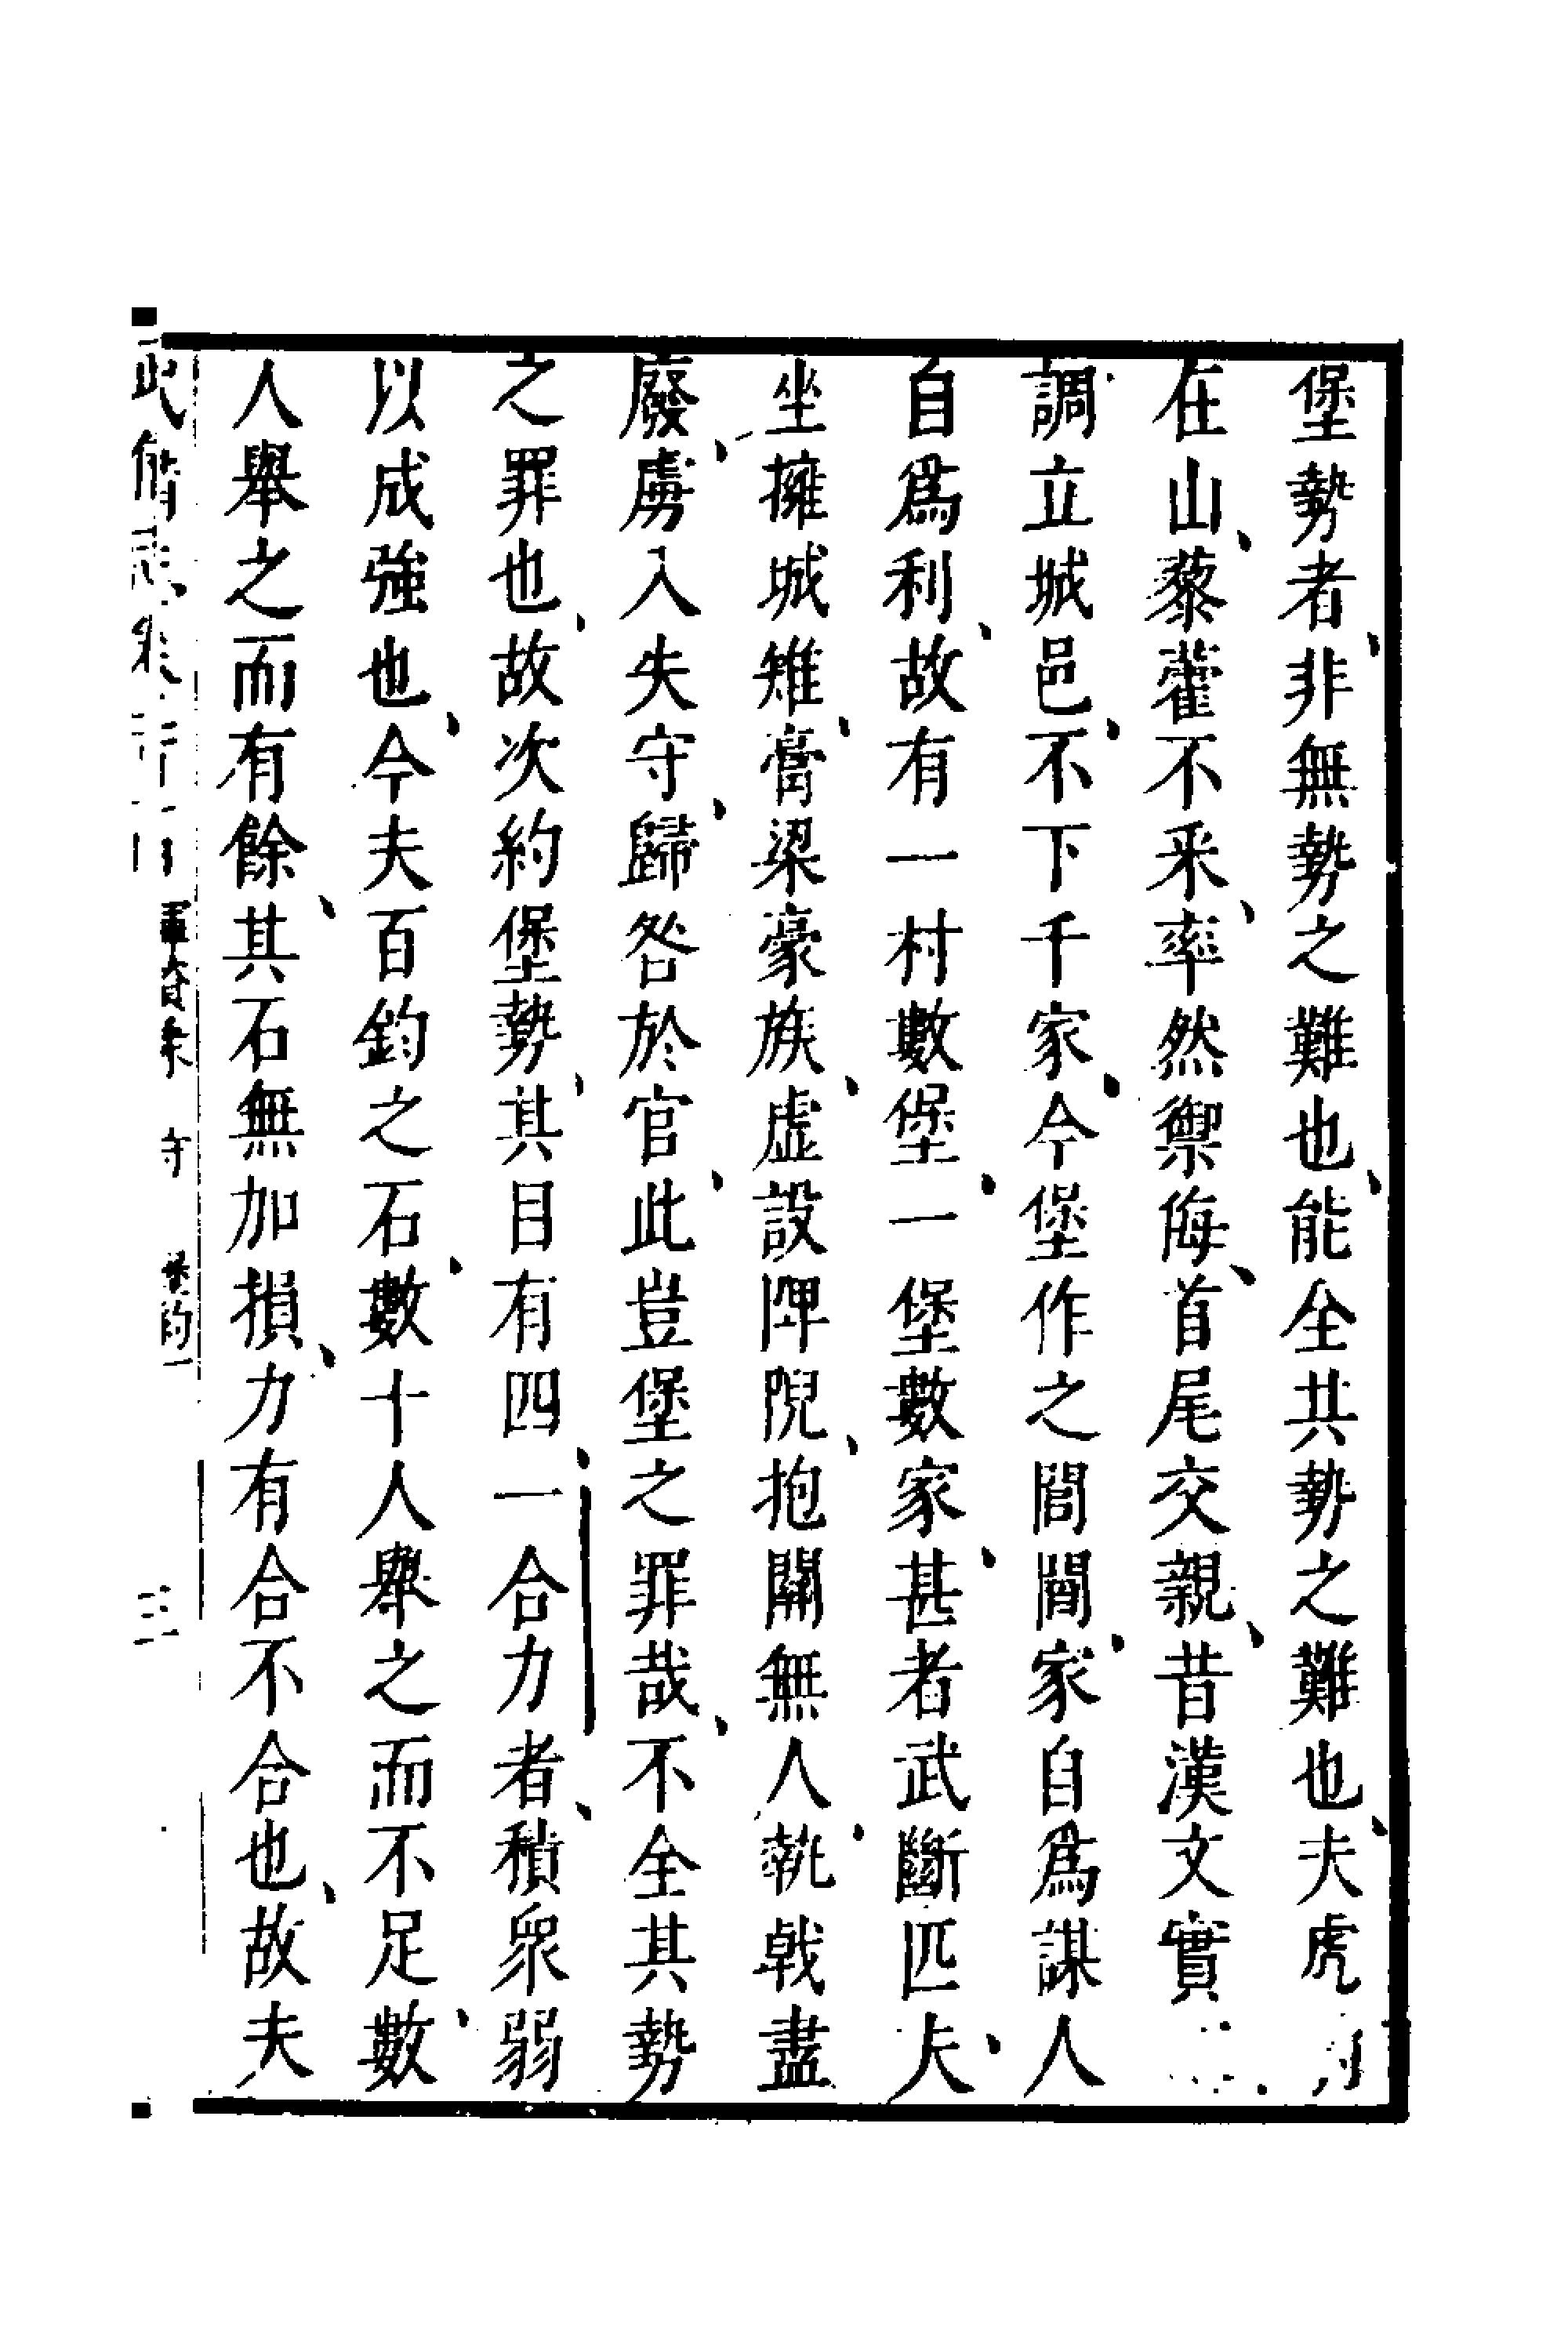 堡勢者、非無勢之難也、能全共勢之難也、夫虎
在山、藜藿不釆、率然禦侮、首尾交親、昔漢文實
調立城邑、不下千家、今堡作之閭閻、家自為謀、人
自為利、故有一村數堡、一堡數家、甚者武斷匹夫、
坐擁城雉、膏梁豪族、虛設陴睨、抱關無人、執戟盡
廢、虜入失守、歸咎於官、此豈堡之罪哉、不全其勢
之罪也、故次約堡勢、其目有四、一合力者、積衆弱
以成強也、今夫百鈞之石、數十人舉之而不足、數
人舉之而有餘、其石無加損、力有合不合也、故夫
武備志 軍資乘 守 堡約一 三